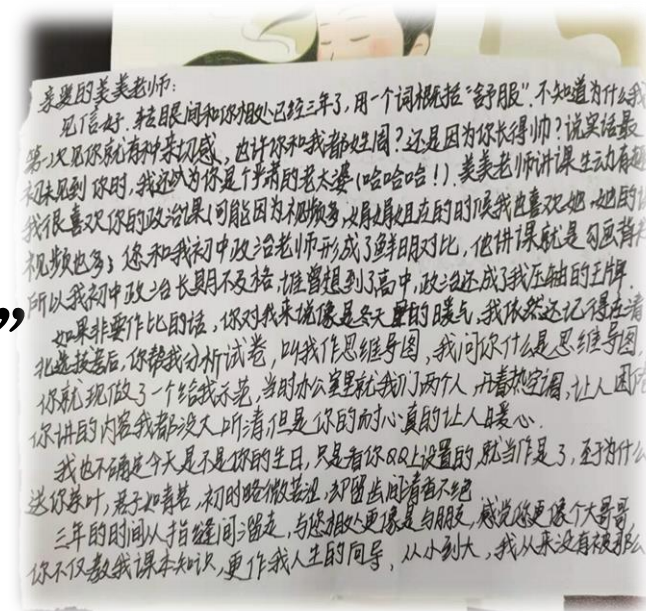 亲爱的美美老师:
见信好.转眼间和你相处已经三年了,用一个词概括“舒服”.不知道为什么我
第一次见你就有种亲切感,也许你和我都姓周?还是因为你长得帅?说实话最
初未见到你时,我还以为你是个半肩的老太婆(哈哈哈!).美美老师讲课生动有趣
我很喜欢你的政治课(可能因为视频多,娟娟姐在的时候我也喜欢她,她的
视频也多;您和我初中政治老师形成了鲜明对比,他讲课就是勾画背
所以我初中政治长期不及格,谁曾想到了高中,政治还成了我压轴的王牌.
如果非要作比的话,你对我来说像是冬天里的暖气,我依然还记得在清
北选拔差后,你帮我分析试卷,叫我作思维导图,我问你什么是思维导图,
你就现做了一个给我示范,当时办公室里就我们两个人,开着热空调,让人困
你讲的内容我都没大听清,但是你的耐心真的让人暖心.
我也不确定今天是不是你的生日,只是看你QQ上设置的,就当作是了,至于为什么
送你茶叶,君子如青茗,初时略微苦涩,却留齿间清香不绝
三年的时间从指缝间溜走,与您相处更像是与朋友,感觉你更像个大哥哥
你不仅教我课本知识,更作我人生的向导,从小到大,我从来没有被那么
”